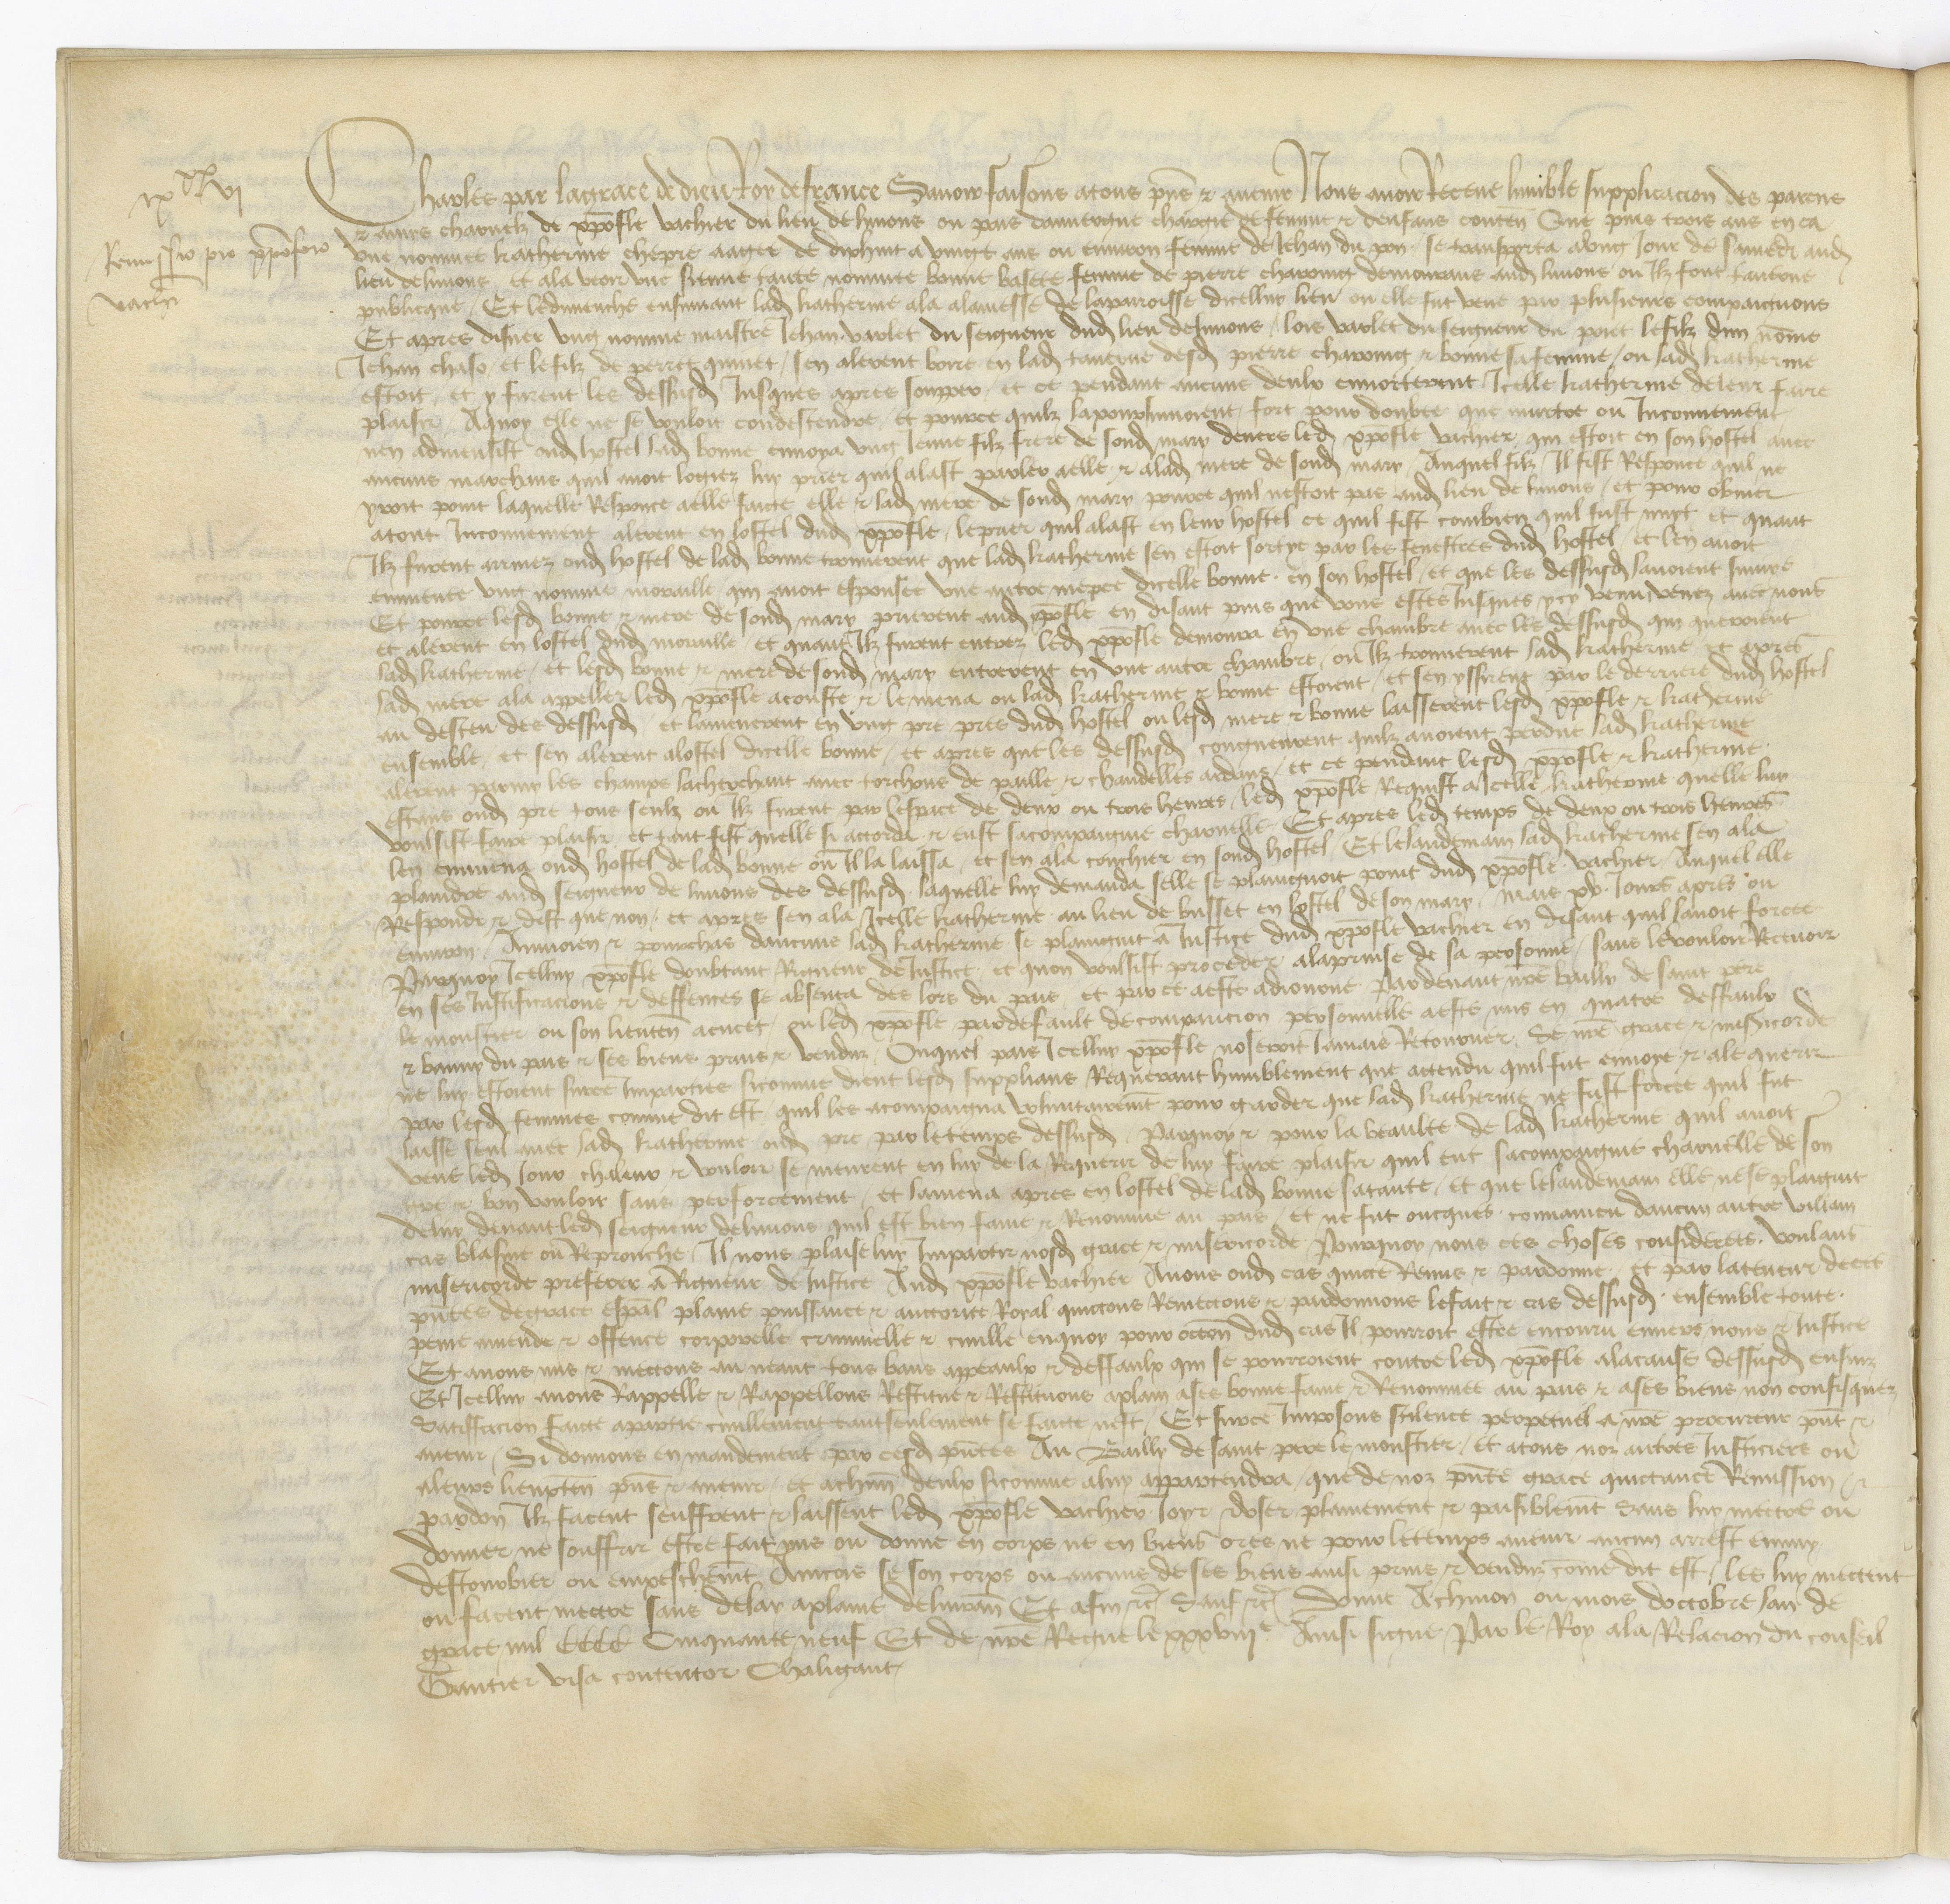 ix^(xx) xvi
Remissio pro xp̄oforo
vachr̄
Charles par la grace de dieu Roy de france Savoir faisons a tous pn̄s & avenir Nous avoir Receue lumble supplicacion des parens
& amis charnelz de xp̄ofle vachier du lieu de limons ou pais dauvergne chargie de femme & denfans conten Que puis trois ans en ca
une nommee katherine chepre aagee de dixhuit a vingt ans ou environ femme de Jehan du pon se transporta a ung Jour de samedi aud
lieu de limons et ala veoir une sienne tante nommee bonne basete femme de pierre charoing demourans aud limons ou Ilz font taverne
publicque Et le dimenche ensuivant lad katherine ala a la messe de la paroisse dicellui lieu ou elle fut veue par plusieurs compaignons
Et apres disner ung nomme maistre Jehan varlet du seigneur dud lieu de limons lois varlet du seigneur du poiet le filz dun nōme
Jehan chaso et le filz de perret quinet sen alerent boire en lad taverne desd pierre charoing & bonne sa femme ou lad katherine
estoit et y furent les dessusd Jusques apres soupper et ce pendant aucuns deulx ennorterent Icelle katherine de leur faire
plaisir A quoy elle ne se vouloit condescendre et pource quilz la poursuivoient fort pour doubte que murtre ou Inconvenient
nen advensist oud hostel lad bonne envoya ung Jeune filz frere de sond mary devers led xp̄ofle vachier qui estoit en son hostel avec
aucuns marchans quil avoit logiez luy prier quil alast parler a elle & a lad mere de sond mary Auquel filz Il fist Responce quil ne
yroit point laquelle Responce a elle faicte elle & lad mere de sond mary pource quil nestoit pas aud lieu de limons et pour obvier
a tout Inconvenient alerent en lostel dud xp̄ofle le prier quil alast en leur hostel ce quil fist combien quil fust nuyt et quant
Ilz furent arrivez oud hostel de lad bonne trouverent que lad katherine sen estoit sortye par les fenestres dud hostel et len avoit
emmenee ung nomme moraille qui avoit espousee une autre niepce dicelle bonne en son hostel et que les dessusd lavoient suivie
Et pource lesd bonne & mere de sond mary prierent aud xp̄ofle en disant puis que vous estes Jusques ycy venu venez avec nous
et alerent en lostel dud moraille et quant Ilz furent entrez led xp̄ofle demoura en une chambre avec les dessusd qui queroient
lad katherine et lesd bonne & mere de sond mary entrerent en une autre chambre ou Ilz trouverent lad katherine et apres
lad mere ala appeller led xp̄ofle a couste & le mena ou lad katherine & bonne estoient et sen yssirent par le derriere dud hostel
au desceu des dessusd et lamenerent en ung pre pres dud hostel ou lesd mere & bonne laisserent lesd xp̄ofle & katherine
ensemble et sen alerent a lostel dicelle bonne et apres que les dessusd congneurent quilz avoient perdue lad katherine
alerent parmy les champs la cherchant avec torchons de paille & chandelles ardans et ce pendant lesd xp̄ofle & katherine
estans oud pre tous seulz ou Ilz furent par lespace de deux ou trois heures led xp̄ofle Requist a Icelle katherine quelle luy
voulsist faire plaisir et tant fist quelle si accorda & eust sa compaignie charnelle Et apres led temps de deux ou trois heures
len emmena oud hostel de lad bonne ou Il la laissa et sen ala couchier en sond hostel Et le landemain lad katherine sen ala
plaindre aud seigneur de limons des dessusd laquelle luy demanda selle se plaingnoit point dud xp̄ofle vachier Auquel elle
Respondi & dist que non et apres sen ala Icelle katherine au lieu de busset en lostel de son mary Mais xv Jours apres ou
environ Au moien & pourchas daucuns lad katherine se plaingnit a Justice dud xp̄ofle vachier en disant quil lavoit forcee
Parquoy Icellui xp̄ofle doubtant Rigueur de Justice et quon voulsist proceder a la prinse de sa personne sans le vouloir Recevoir
en ses Justificacions & deffences se absenta des lors du pais et par ce a este adiourne Pardevant nr̄e bailly de saint pere
le monstier ou son lieuten a cucet ou led xp̄ofle par default de comparicion personnelle a este mis en quatre deffaulx
& banny du pais & ses biens prins & venduz Ouquel pais Icellui xp̄ofle noseroit Jamais Retourner Se nr̄e grace & misericorde
ne luy estoient sur ce Imparties sicomme dient lesd supplians Requerant humblement que attendu quil fut envoye & ale querir
par lesd femmes comme dit est quil les acompaigna voluntairemt̄ pour garder que lad katherine ne fust forcee quil fut
laisse seul avec lad katherine oud pre par le temps dessusd Parquoy & pour la beaulte de lad katherine quil avoit
veue led Jour chaleur & vouloir se meurent en luy de la Requerir de luy faire plaisir quil eut sa compaignie charnelle de son
gre & bon vouloir sans perforcement et lamena apres en lostel de lad bonne sa tante Et que le landemain elle ne se plaignit
de luy devant led seigneur de limons quil est bien fame & Renomme au pais et ne fut oncques convaincu daucun autre villain
cas blasme ou Reprouche Il nous plaise luy Impartir nosd grace & misericorde Pourquoy nous ces choses considerees voulans
misericorde preferer a Rigueur de Justice Aud xp̄ofle vachier Avons oud cas quicte Remis & pardonne et par la teneur de ces
pn̄tes de grace esp̄al plaine puissance & auctorite Royal quictons Remectons & pardonnons le fait & cas dessusd ensemble toute
peine amende & offence corporelle criminelle & civille enquoy pour occōn dud cas Il pourroit estre encouru envers nous & Justice
Et avons mis & mectons au neant tous bans appeaulx & deffaulx qui se pourroient contre led xp̄ofle a la cause dessusd ensuiz
Et Icellui avons Rappelle & Rappellons Restitue & Restituons a plain a ses bonne fame & Renommee au pais & a ses biens non confisquez
Satisfacion faicte a partie civillement tant seulement se faicte nest Et sur ce Imposons silence perpetuel a nr̄e procureur pn̄t &
avenir Si donnons en mandement par cesd pn̄tes Au Bailly de saint pere le monstier et a tous noz autres Justiciers ou
a leurs lieuxten̄ pn̄s & avenir et a chūn deulx sicomme a luy appartendra que de noz pn̄te grace quictance Remission &
pardon Ilz facent seuffrent & laissent led xp̄ofle vachier Joyr & user plainement & paisiblemt̄ sans luy mectre ou
donner ne souffrir estre fait mis ou donne en corps ne en biens ores ne pour le temps avenir aucun arrest ennuy
destourbier ou empeschemt̄ Aincois se son corps ou aucuns de ses biens ainsi prins & venduz cōme dit est les luy mectent
ou facent mectre sans delay a plaine delivran̄ Et afin &c̄ Sauf &c̄ Donne A chinon ou mois doctobre lan de
grace mil CCCC Cinquante neuf Et de nr̄e Regne le xxxviiie Ainsi signe Par le Roy a la Relacion du conseil
Gautier visa contentor Chaligaut